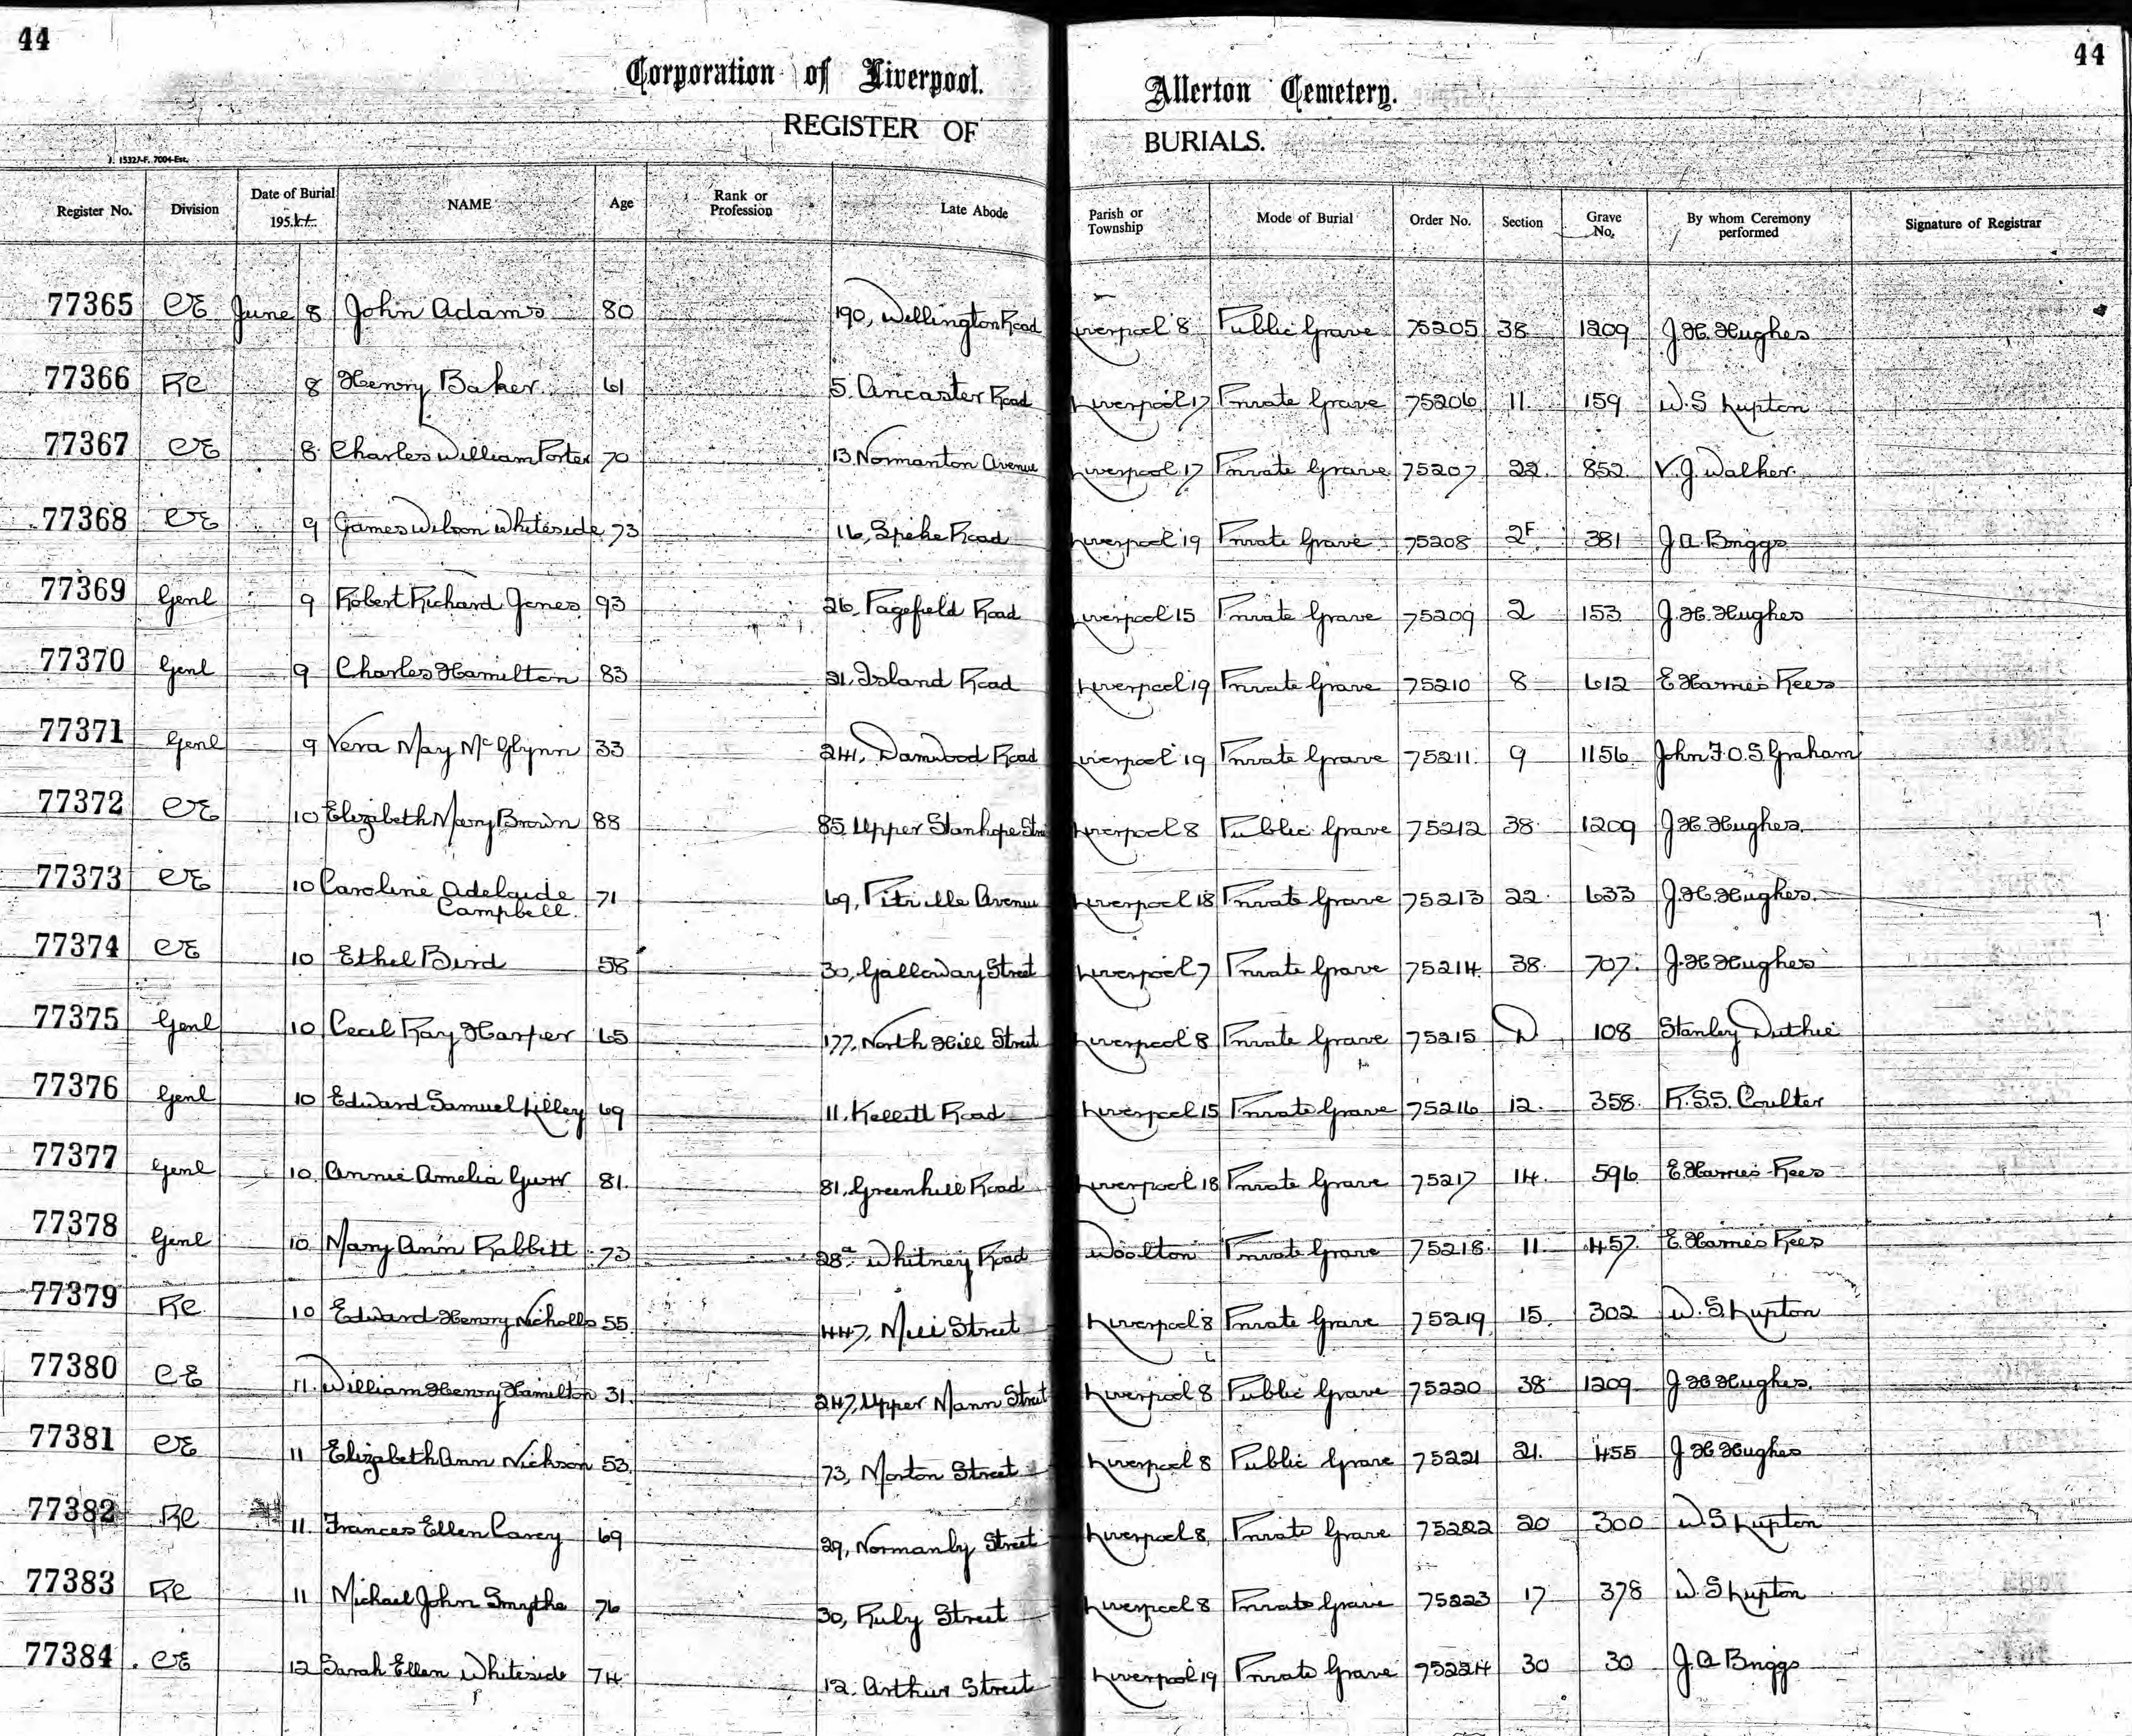 44
44
Corporation of Liverpool. Allerton Cemetery.
REGISTER OF BURIALS.
Register No. Division Date of Burial 195.4. NAME Age Rank or Profession Late Abode Parish or Township Mode of Burial Order No. Section Grave No. By whom Ceremony performed Signature of Registrar
77365 CE June 8 John Adams 80 190, Wellington Road Liverpool 8 Public Grave 75205 38 1209 J.H. Hughes
77366 RC 8 Henry Baker 61 5. Ancaster Road Liverpool 17 Private Grave 75206 11. 159 W.S Lupton
77367 CE 8. Charles William Porter 70 13 Normanton Avenue Liverpool 17 Private Grave 75207 22. 852 V.J. Walker.
77368 CE 9 James Wilson Whiteside 73 16, Speke Road Liverpool 19 Private Grave 75208 2F. 381 J.A. Briggs
77369 Genl 9 Robert Richard Jones 93 26, Pagefield Road Liverpool 15 Private Grave 75209 2 153 J.H. Hughes
77370 Genl 9 Charles Hamilton 83 21. Island Road Liverpool 19 Private Grave 75210 8 612 E Harries Rees
77371 Genl 9 Vera May McGlynn 33 241, Damwood Road Liverpool 19 Private Grave 75211. 9 1156 John F.O.S. Graham
77372 CE 10 Elizabeth Mary Brown 88 85 Upper Stanhope Liverpool 8 Public Grave 75212 38 1209 J.H. Hughes.
77373 CE 10 Caroline Adelaide Campbell. 71 69, Pitville Avenue Liverpool 18 Private Grave 75213 22. 633 J.H. Hughes.
77374 CE 10 Ethel Bird 58 30, Galloway Street Liverpool 7 Private Grave 75214. 38. 707. J.H Hughes
77375 Genl 10 Cecil Ray Harper 65 177, North Hill Street Liverpool 8 Private Grave 75215 D 108 Stanley Duthie
77376 Genl 10 Edward Samuel Lilley 69 11. Kellett Road Liverpool 15 Private Grave 75216 12. 358. R.S.S. Coulter
77377 Genl 10. Annie Amelia 81. 81, Greenhill Road Liverpool 18 Private Grave 75217 14. 596 E. Harries Rees
77378 Genl 10 Mary Ann Rabbitt 73 28a Whitney Road Woolton Private Grave 75218. 11. 457. E. Harries Rees
77379 RC. 10 Edward Henry Nicholls 55. 447, Mill Street Liverpool 8 Private Grave 75219 15. 302 W.S. Lupton
77380 CE 11. William Henry Hamilton 31. 247, Upper Mann Street Liverpool 8 Public Grave 75220 38 1209 J H Hughes.
77381 CE 11 Elizabeth Ann Nickson 53. 73, Morton Street Liverpool 8 Public Grave 75221 21. 455 J H Hughes
77382 RC 11. Frances Ellen Carey 69 29, Normanby Street Liverpool 8, Private Grave 75222 20 300 W S Lupton
77383 RC 11 Michael John Smythe 76 30, Ruby Street Liverpool 8 Private Grave 75223 17 378 W. S Lupton
77384 CE 12 Sarah Ellen Whiteside 74 12. Arthur Street Liverpool 19 Private Grave 75224 30 30 J.A Briggs